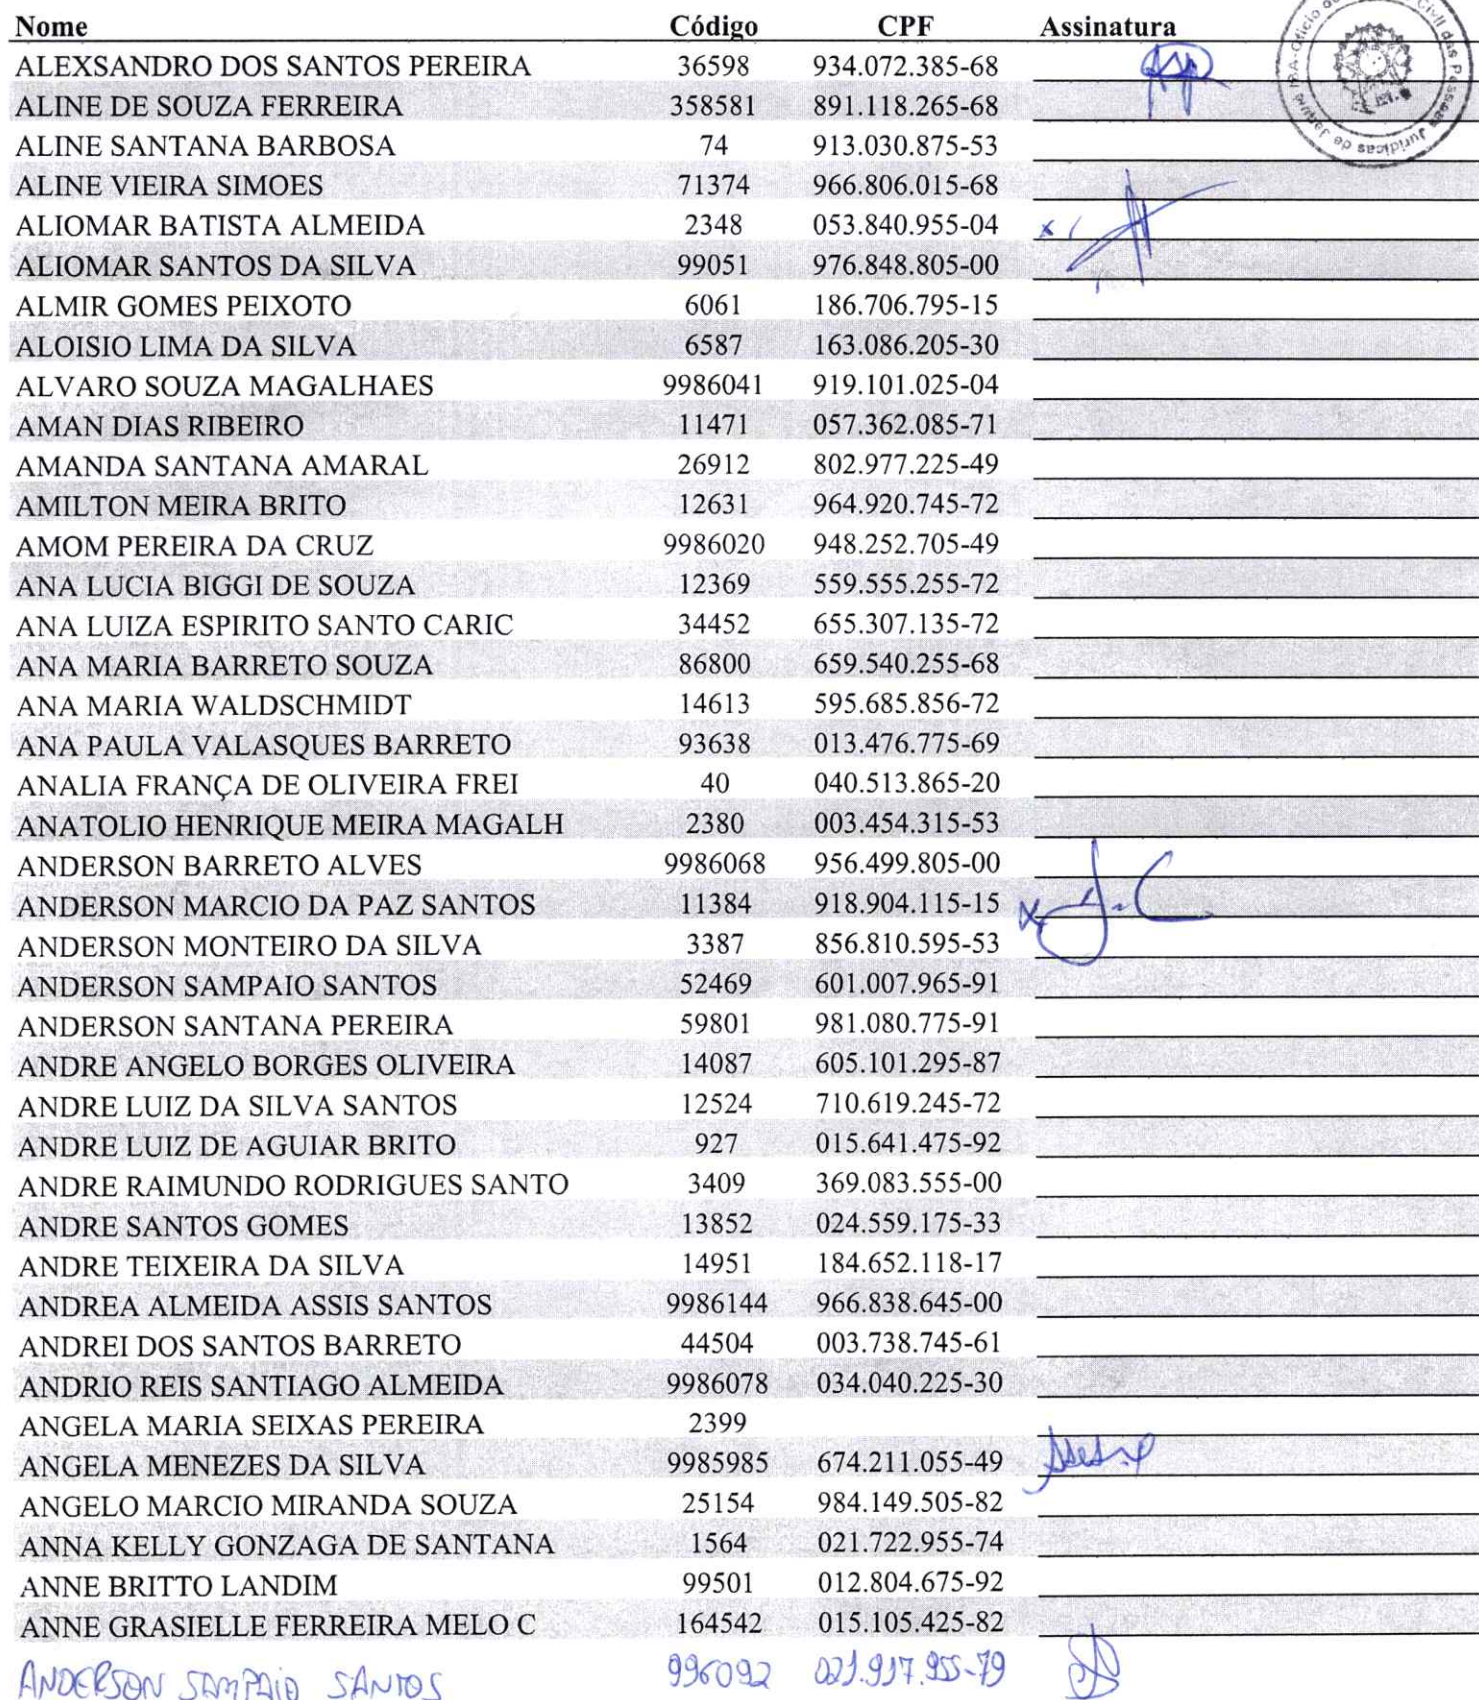 Nome Código CPF Assinatura
ALEXSANDRO DOS SANTOS PEREIRA 36598 934.072.385-68
ALINE DE SOUZA FERREIRA 358581 891.118.265-68
ALINE SANTANA BARBOSA 74 913.030.875-53
ALINE VIEIRA SIMOES 71374 966.806.015-68
ALIOMAR BATISTA ALMEIDA 2348 053.840.955-04
ALIOMAR SANTOS DA SILVA 99051 976.848.805-00
ALMIR GOMES PEIXOTO 6061 186.706.795-15
ALOISIO LIMA DA SILVA 6587 163.086.205-30
ALVARO SOUZA MAGALHAES 9986041 919.101.025-04
AMAN DIAS RIBEIRO 11471 057.362.085-71
AMANDA SANTANA AMARAL 26912 802.977.225-49
AMILTON MEIRA BRITO 12631 964.920.745-72
AMOM PEREIRA DA CRUZ 9986020 948.252.705-49
ANA LUCIA BIGGI DE SOUZA 12369 559.555.255-72
ANA LUIZA ESPIRITO SANTO CARIC 34452 655.307.135-72
ANA MARIA BARRETO SOUZA 86800 659.540.255-68
ANA MARIA WALDSCHMIDT 14613 595.685.856-72
ANA PAULA VALASQUES BARRETO 93638 013.476.775-69
ANALIA FRANÇA DE OLIVEIRA FREI 40 040.513.865-20
ANATOLIO HENRIQUE MEIRA MAGALH 2380 003.454.315-53
ANDERSON BARRETO ALVES 9986068 956.499.805-00
ANDERSON MARCIO DA PAZ SANTOS 11384 918.904.115-15
ANDERSON MONTEIRO DA SILVA 3387 856.810.595-53
ANDERSON SAMPAIO SANTOS 52469 601.007.965-91
ANDERSON SANTANA PEREIRA 59801 981.080.775-91
ANDRE ANGELO BORGES OLIVEIRA 14087 605.101.295-87
ANDRE LUIZ DA SILVA SANTOS 12524 710.619.245-72
ANDRE LUIZ DE AGUIAR BRITO 927 015.641.475-92
ANDRE RAIMUNDO RODRIGUES SANTO 3409 369.083.555-00
ANDRE SANTOS GOMES 13852 024.559.175-33
ANDRE TEIXEIRA DA SILVA 14951 184.652.118-17
ANDREA ALMEIDA ASSIS SANTOS 9986144 966.838.645-00
ANDREI DOS SANTOS BARRETO 44504 003.738.745-61
ANDRIO REIS SANTIAGO ALMEIDA 9986078 034.040.225-30
ANGELA MARIA SEIXAS PEREIRA 2399
ANGELA MENEZES DA SILVA 9985985 674.211.055-49
ANGELO MARCIO MIRANDA SOUZA 25154 984.149.505-82
ANNA KELLY GONZAGA DE SANTANA 1564 021.722.955-74
ANNE BRITTO LANDIM 99501 012.804.675-92
ANNE GRASIELLE FERREIRA MELO C 164542 015.105.425-82
ANDERSON SAMPAIO SANTOS 996092 021.917.955-79
Civil das Pessoas Jurídicas de Jequié